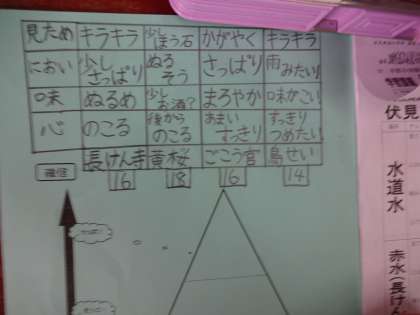 見ため キラキラ 少しほう石 かがやく キラキラ
におい 少しさっぱり ぬるそう さっぱり 雨みたい!
味 ぬるめ 少しお酒? まろやか 味がこい
心 のこる 後からのこる あまいすっきり すっきりつめたい!
長けん寺 黄桜 ごこう宮 鳥せい
16 18 16 14
確信
伏見
水道水
赤水(長けん